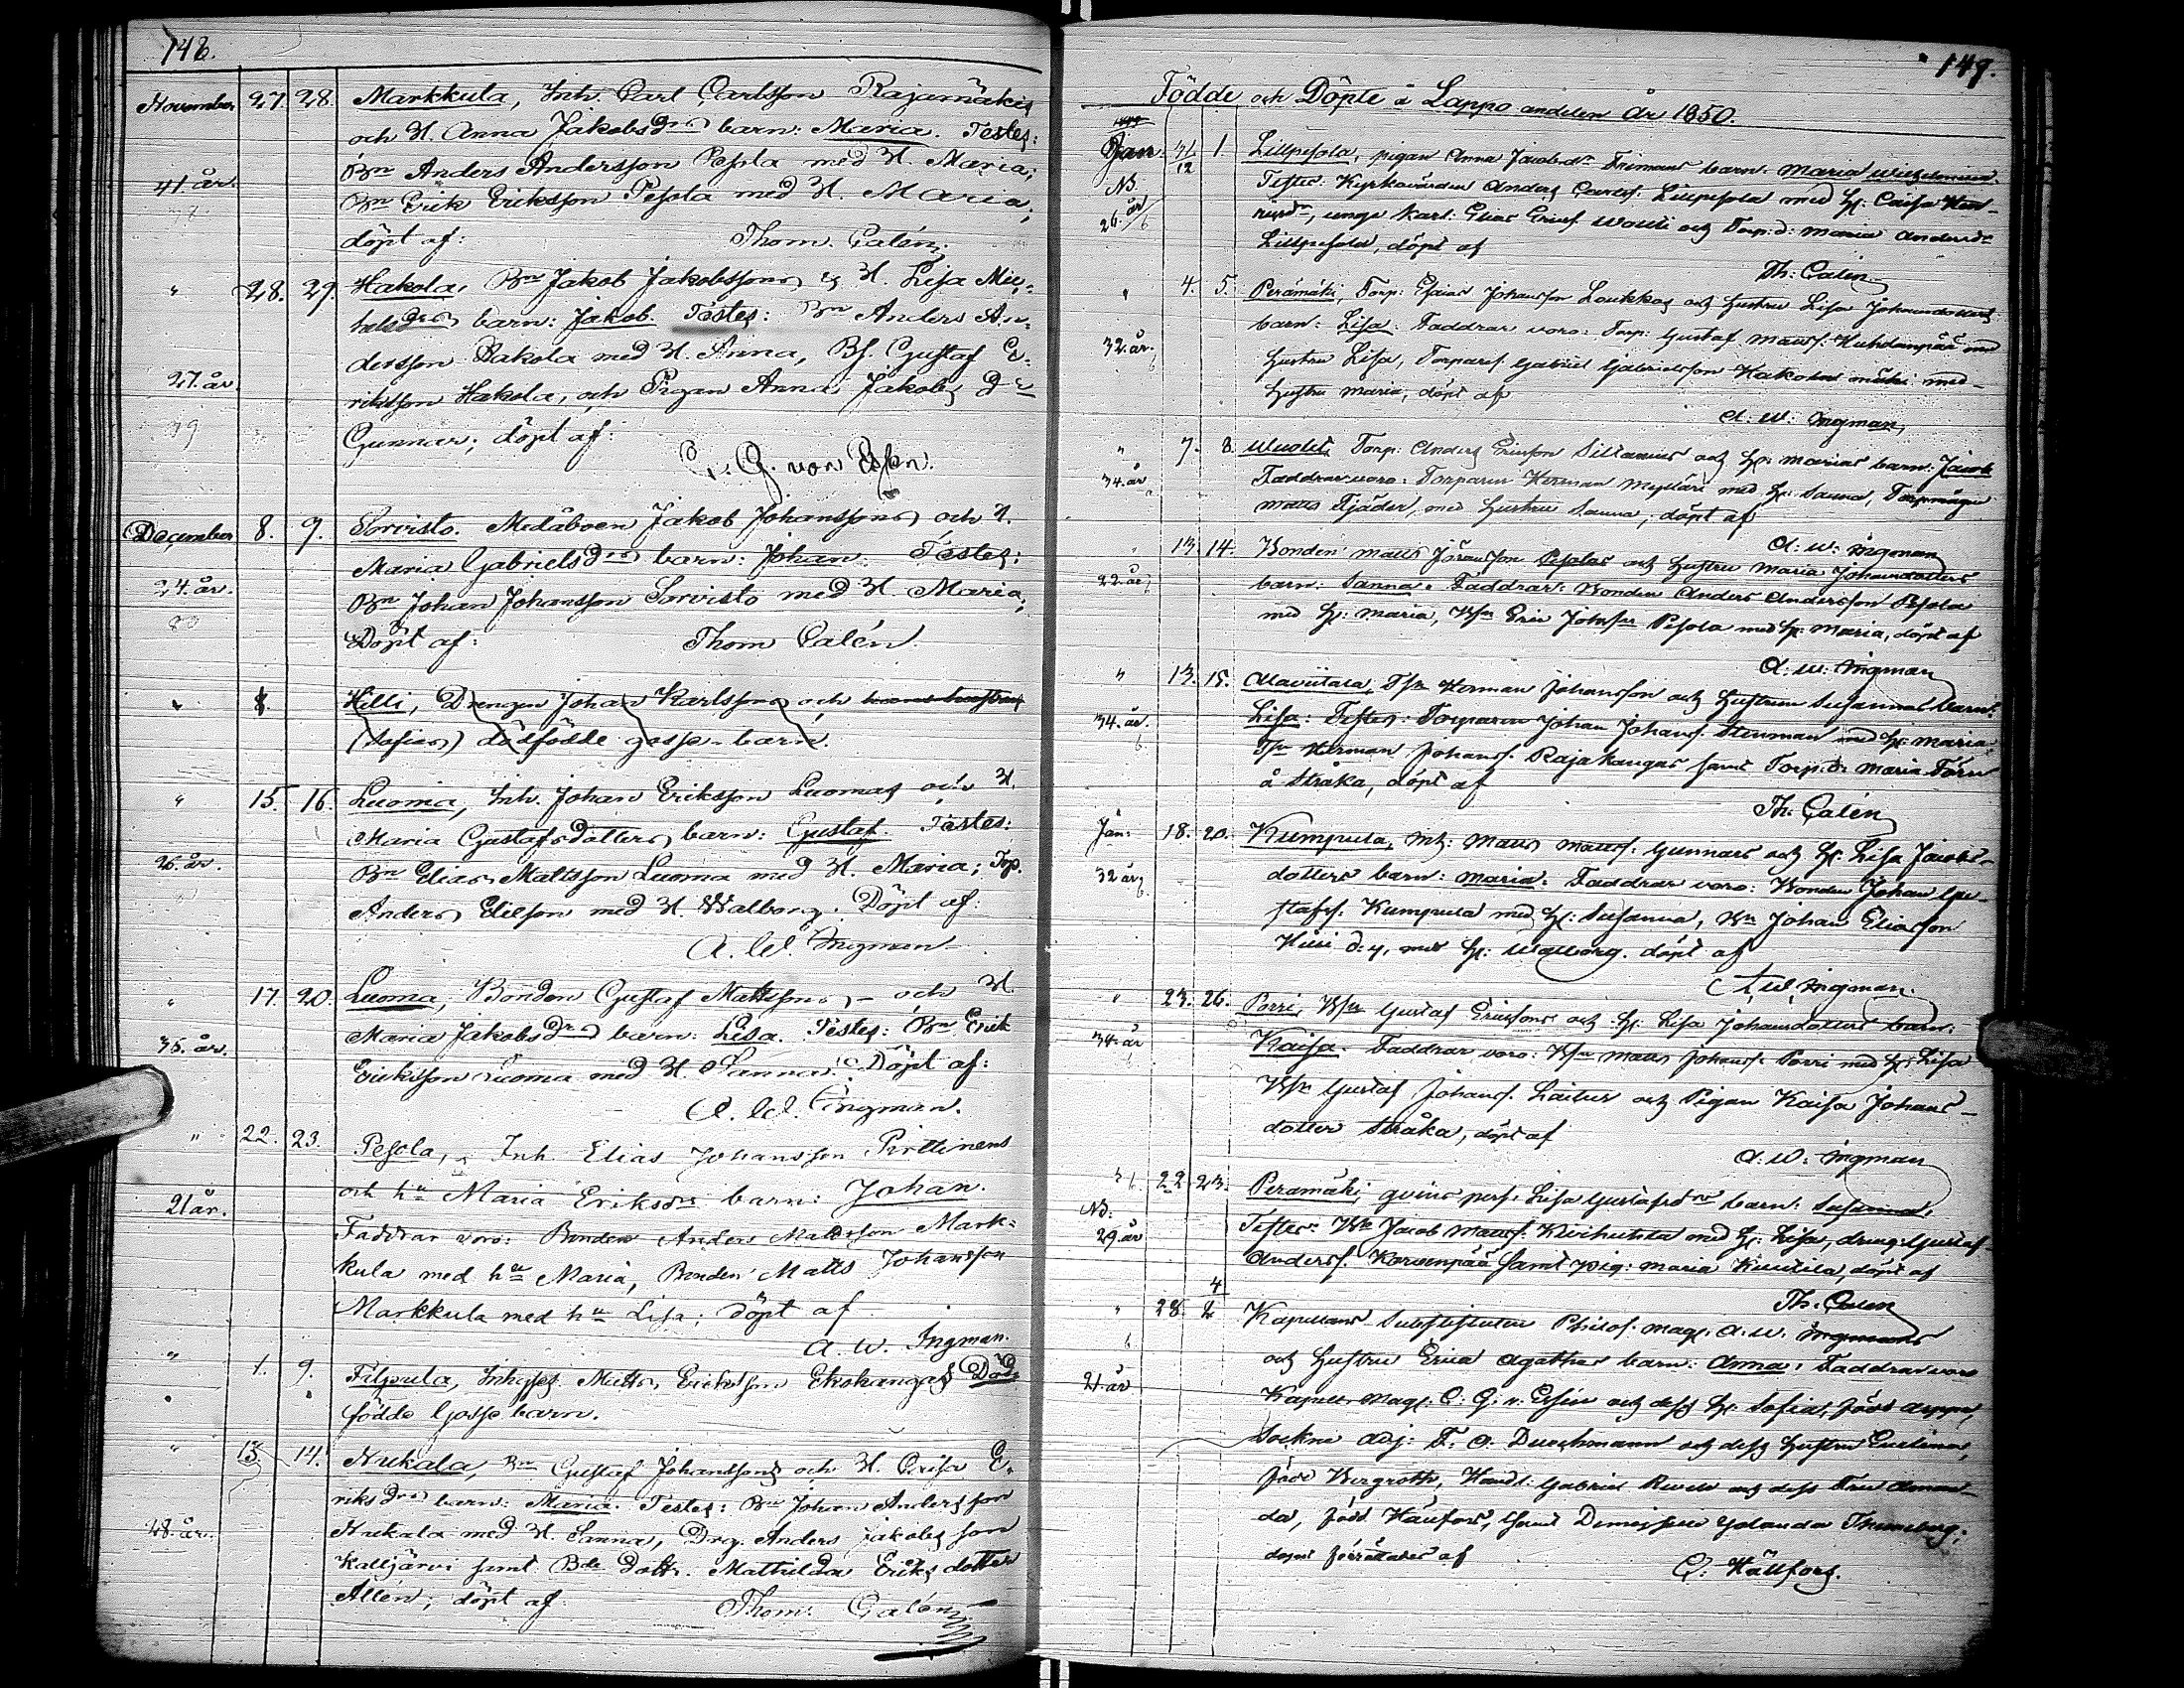 148.
November 27. 28. Markkula, Inh. Carl Carlsson Rajamäkis
och H. Anna Jakobsdrs barn: Maria. Testes:
Bn Anders Andersson Pesola med H. Maria;
41 år. Bn Erik Eriksson Pesola med H. Maria;
döpt af: Thom. Calén.
" 28. 29. Hakola, Bn Jakob Jakobssons & H. Lisa
barn: Jakob. Testes: Bn Anders An-
dersson Hakola med H. Anna, Bs. Gustaf E-
27. år. riksson Hakola, och Pigan Anna Jakobs dr
Gunnar; döpt af:
C. G. von Essen.
December 8. 9. Sorvisto. Medåboen Jakob Johanssons och H.
Maria Gabrielsdrs barn: Johan. Testes:
24. år. Bn Johan Johansson Sorvisto med H. Maria;
80
Döpt af: Thom Calén.
" 8. Hilli, Drengen Johan Karlssons och
(Sofias) dödfödde gosse-barn.
" 15. 16. Luoma, Inh. Johan Eriksson Luomas och H.
Maria Gustafsdotters barn: Gustaf. Testes:
26. år. Bn Elias Mattsson Luoma med H. Maria; Top.
Anders Elilson med H. Walborg. Döpt af:
A. W. Ingman
" 17. 20. Luoma, Bonden Gustaf Mattssons - och H.
Maria Jakobsdrs barn: Lisa. Testes: Bn Erik
35. år. Eriksson Luoma med H. Sanna. Döpt af:
A. W. Ingman.
" 22. 23. Pesola, Inh. Elias Johansson Pirttinens
och hu Maria Eriksdrs barn: Johan.
21 år. Faddrar voro: Bonden Anders Mattsson Mark-
kula med hu Maria, Bonden Matts Johansson
Markkula med hu Lisa; döpt af
A. W. Ingman.
" 1. 9. Filpula, Inhyses Matts Erickson Ekokangas Död-
födde Gosse barn.
" 13. 14. Nukala, Bn Gustaf Johanssons och H. E-
riksdrs barn: Maria. Testes: Bn Johan Andersson
28. år. Nukala med H. Sanna, Drg. Anders Jakobsson
Kaltjärvi samt Bde Dottr. Mathilda Eriksdotter
Allén; döpt af: Thom. Calén
149.
Födde och Döpte i Lappo andelen år 1850.
Jan. 31/12 1. Lillpesola, pigan Anna Jacobsdr barn: Maria Wilhelmina.
Nb. Testes: Kyrkovärden Anders Lillpesola med H: Caisa Hen-
26. år ricsdr, unge karl: Elias Ericss. Wouti och Torp: d: Maria Andersdr
Lillpesola, döpt af
Th: Calén
" 4. 5. Perämäki, Torp: Esaias Johansson Loukkos och Hustru Lisa Johansdotters
32. år. barn: Lisa: Faddrar voro: Torp: Gustaf Matss. Huhdanpää med
Hustru Lisa, Torpares. Gabriel Gabrielsson Hakolanmäki med
Hustru Maria, döpt af
A: W: Ingman,
" 7. 8. Torp: Anders Ericsson och H: Marias barn: Jacob
34. år Faddrar voro: Torparen Herman Mylläri med H: Sanna, Torpmågen
Matts Fjäder, med Hustru Sanna, döpt af
A: W: Ingman
" 13. 14. Bonden Matts Pesolas och Hustru Maria Johansdotters
22. år. barn: Sanna. Faddrar: Bonden Anders Andersson Pesola
med H: Maria, Bsn Eric Pesola med H: Maria, döpt af
A: W: Ingman
" 13. 15. Alaviitala, Herman Johansson och Hustrun Susannas barn:
34. år. Lisa: Testes: Torparen Johan Johanss. Stenman med H: Maria,
Herman Johanss. Rajakangas samt Torp: d: Maria Törn
å Stråka, döpt af
Th: Calén
Jan: 18. 20. Kumpula, Inh: Matts Matss: Gunnars och H: Lisa Jacobs-
32 år dotters barn: Maria: Faddrar voro: Bonden Johan Gu-
stafss. Kumpula med H: Susanna, Bn Johan Eliasson
d: y, med H: Walborg. döpt af
A W Ingman.
" 23. 26. Porri, Gustaf Ericssons och H: Lisa Johansdotters barn:
34. år Kaisa. Faddrar voro: Matts Johanss. Porri med H: Lisa
Gustaf Johanss. och Pigan Kaisa Johans-
dotter Stråka, döpt af
A: W: Ingman
" 22. 23. Peramäki, qvins pers. Lisa Gustafsdrs barn: Susanna.
Nb: Testes: Bn Jacob Matss. Kivihuhta med H: Lisa, dreng: Gustaf
29. år Anderss. Karvonpää samt pig: Maria Kuutila, döpt af
Th. Calén
4
" 28. 2 Kapellans Substituten Philos. Mag. A. W. Ingmans
och Hustru Erica Agathas barn: Anna: Faddrar voro
21. år Kapell. Mag. C. G. v. Essen och dess H: Sofia, född Arppe,
Sockne Adj: F. O. Durchmann och dess Hustru
född Bergroth, Handl: Gabriel och dess Fru Aman-
da, född samt Demoiselle Yolanda Thuneberg;
dopet förrättades af
C. Hällfors.